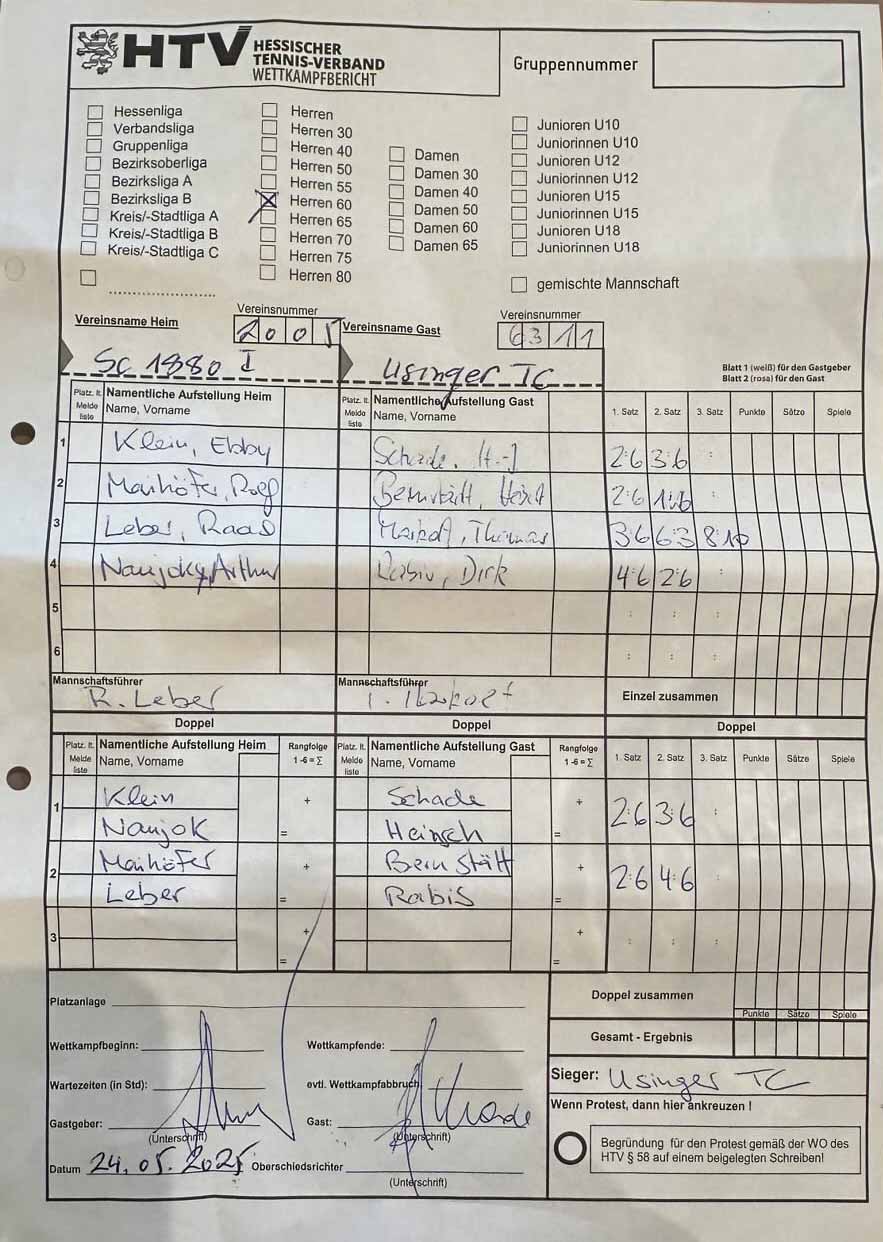 HTV HESSISCHER
TENNIS-VERBAND
WETTKAMPFBERICHT
Gruppennummer
Hessenliga
Verbandsliga
Gruppenliga
Bezirksoberliga
Bezirksliga A
Bezirksliga B
Kreis/-Stadtliga A
Kreis/-Stadtliga B
Kreis/-Stadtliga C
Herren
Herren 30
Herren 40
Herren 50
Herren 55
Herren 60
Herren 65
Herren 70
Herren 75
Herren 80
Damen
Damen 30
Damen 40
Damen 50
Damen 60
Damen 65
Junioren U10
Juniorinnen U10
Junioren U12
Juniorinnen U12
Junioren U15
Juniorinnen U15
Junioren U18
Juniorinnen U18
gemischte Mannschaft
Vereinsname Heim
Vereinsnummer
2005
SC 1880 I
Vereinsname Gast
Vereinsnummer
6311
Usinger TC
Blatt 1 (weiß) für den Gastgeber
Blatt 2 (rosa) für den Gast
Platz. lt. Melde liste Namentliche Aufstellung Heim Name, Vorname Platz. lt. Melde liste Namentliche Aufstellung Gast Name, Vorname 1. Satz 2. Satz 3. Satz Punkte Sätze Spiele
1 Klein, Ebby Schade, 2:6 3:6 :
2 Maihöfer, Rolf 2:6 1:6 :
3 Leber, 3:6 6:3 8:10
4 Arthur Dirk 4:6 2:6 :
5 : : :
6 : : :
Mannschaftsführer R. Leber Mannschaftsführer Einzel zusammen
Doppel Doppel Doppel
Platz. lt. Melde liste Namentliche Aufstellung Heim Name, Vorname Rangfolge 1 -6 = Σ Platz. lt. Melde liste Namentliche Aufstellung Gast Name, Vorname Rangfolge 1 -6 = Σ 1. Satz 2. Satz 3. Satz Punkte Sätze Spiele
1 Klein + Schade + 2:6 3:6 :
Naujok = Heinsch =
2 Maihöfer + Bernstätt + 2:6 4:6 :
Leber = Rabis =
3 + + : : :
= =
Platzanlage
Wettkampfbeginn: Wettkampfende:
Wartezeiten (in Std): evtl. Wettkampfabbruch
Gastgeber: Gast:
(Unterschrift) (Unterschrift)
Datum 24.05.2025 Oberschiedsrichter
(Unterschrift)
Doppel zusammen
Punkte Sätze Spiele
Gesamt - Ergebnis
Sieger: Usinger TC
Wenn Protest, dann hier ankreuzen !
Begründung für den Protest gemäß der WO des
HTV § 58 auf einem beigelegten Schreiben!